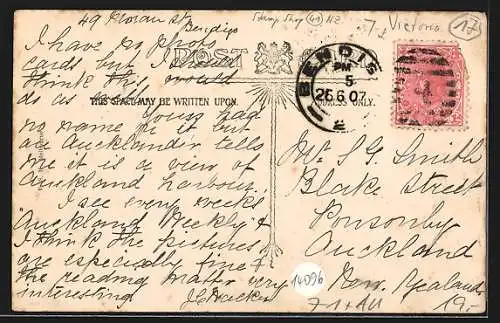 49 Moran St
Bendigo
I have no photo
cards but I
think this would
do as well
Yours had
no name on it but
an Aucklander tells
me it is a view of
Auckland harbour.
I see every week
"Auckland Weekly" &
I think the pictures
are especially fine &
the reading matter very
interesting
POST
THIS SPACE MAY BE WRITTEN UPON.
ADDRESS ONLY.
Stamp Shop 41 NZ
7/2 Victoria
17
BENDIGO
PM
5
26.6.07
2
Mr S G Smith
Blake Street
Ponsonby
Auckland
New Zealand
14096
19.-